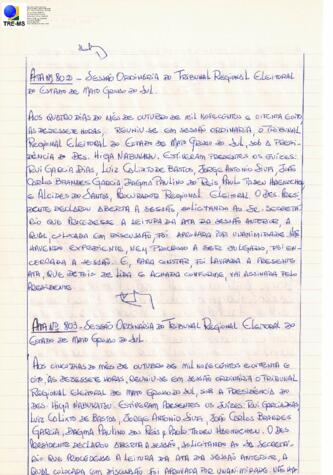 TRE-MS
ATA Nº 802 - SESSÃO ORDINÁRIA DO TRIBUNAL REGIONAL ELEITORAL
DO ESTADO DE MATO GROSSO DO SUL.
AOS QUATRO DIAS DO MÊS DE OUTUBRO DE MIL NOVECENTOS E OITENTA E OITO,
ÀS DEZESSETE HORAS, REUNIU EM SESSÃO ORDINÁRIA, O TRIBUNAL
REGIONAL ELEITORAL DO ESTADO DE MATO GROSSO DO SUL, SOB A PRESI-
DÊNCIA DO DES. HIGA NABUKATSU. ESTIVERAM PRESENTES OS JUÍZES:
RUI GARCIA DIAS, LUIZ CALIXTO DE BASTOS, JORGE ANTONIO SIUFI, JOÃO
CARLOS BRANDES GARCIA, DAGMA PAULINO DOS REIS, PAULO TADEU HAENDCHEN
E ALCIDES DOS SANTOS, PROCURADOR REGIONAL ELEITORAL. O DES. PRESI-
DENTE DECLAROU ABERTA A SESSÃO, SOLICITANDO AO SR. SECRETÁ-
RIO QUE PROCEDESSE A LEITURA DA ATA DA SESSÃO ANTERIOR, A
QUAL COLOCADA EM DISCUSSÃO, FOI APROVADA POR UNANIMIDADE. NÃO
HAVENDO EXPEDIENTE, NEM PROCESSO A SER JULGADO, FOI EN-
CERRADA A SESSÃO. E, PARA CONSTAR, FOI LAVRADA A PRESENTE
ATA, QUE DEPOIS DE LIDA E ACHADA CONFORME, VAI ASSINADA PELO
PRESIDENTE.
ATA Nº 803 - SESSÃO ORDINÁRIA DO TRIBUNAL REGIONAL ELEITORAL DO
ESTADO DE MATO GROSSO DO SUL.
AOS CINCO DIAS DO MÊS DE OUTUBRO DE MIL NOVECENTOS E OITENTA E
OITO, ÀS DEZESSETE HORAS, REUNIU EM SESSÃO ORDINÁRIA O TRIBUNAL
REGIONAL ELEITORAL DE MATO GROSSO DO SUL, SOB A PRESIDÊNCIA DO
DES. HIGA NABUKATSU. ESTIVERAM PRESENTES OS JUÍZES: RUI GARCIA DIAS,
LUIZ CALIXTO DE BASTOS, JORGE ANTONIO SIUFI, JOÃO CARLOS BRANDES
GARCIA, DAGMA PAULINO DOS REIS E PAULO TADEU HAENDCHEN. O DES.
PRESIDENTE DECLAROU ABERTA A SESSÃO, SOLICITANDO AO SR. SECRETÁ-
RIO QUE PROCEDESSE A LEITURA DA ATA DA SESSÃO ANTERIOR, A
QUAL COLOCADA EM DISCUSSÃO FOI APROVADA POR UNANIMIDADE. NÃO HA-